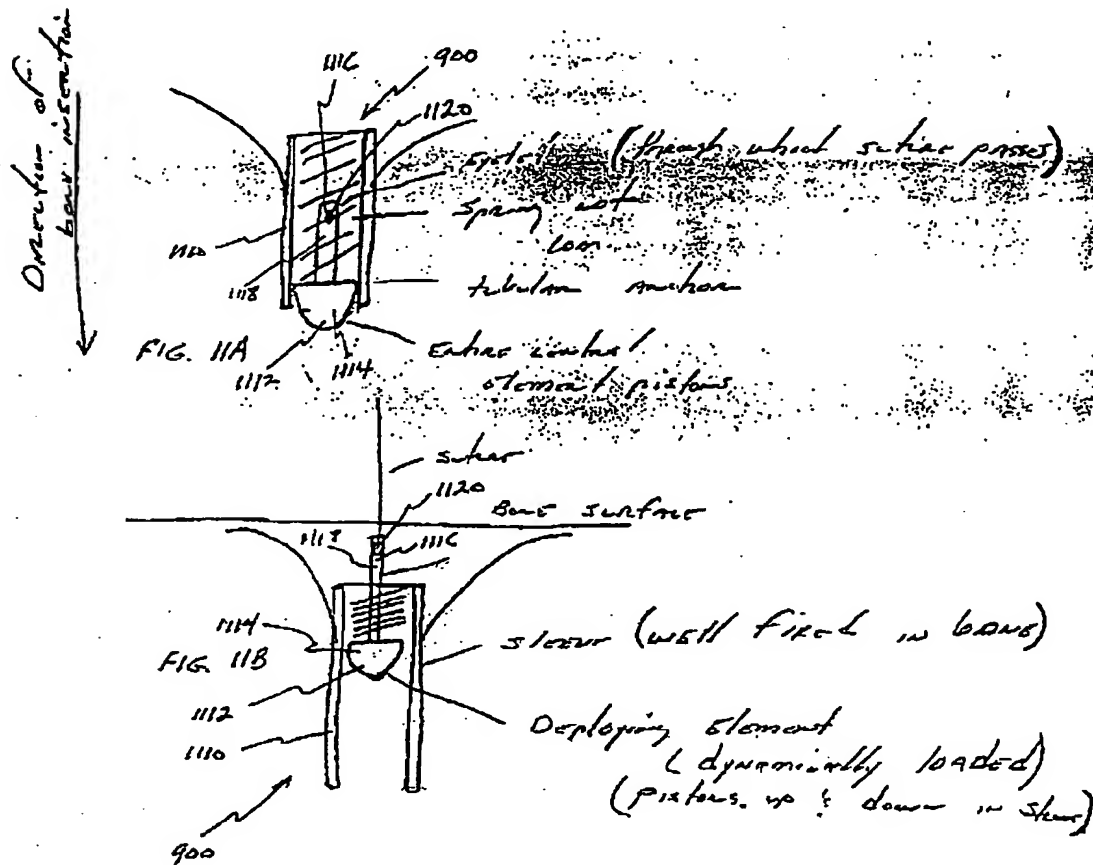 Direction of
bone insertion
1116
900
1120
Eyelet (through which suture passes)
Spring not
1110
tubular anchor
1118
FIG. 11A
1112
1114
Entire central
element pistons
suture
1120
Bone Surface
1118
1116
1114
FIG. 11B
sleeve (well fixed in bone)
1112
1110
Deploying Element
(dynamically loaded)
(pistons up & down in sleeve)
900